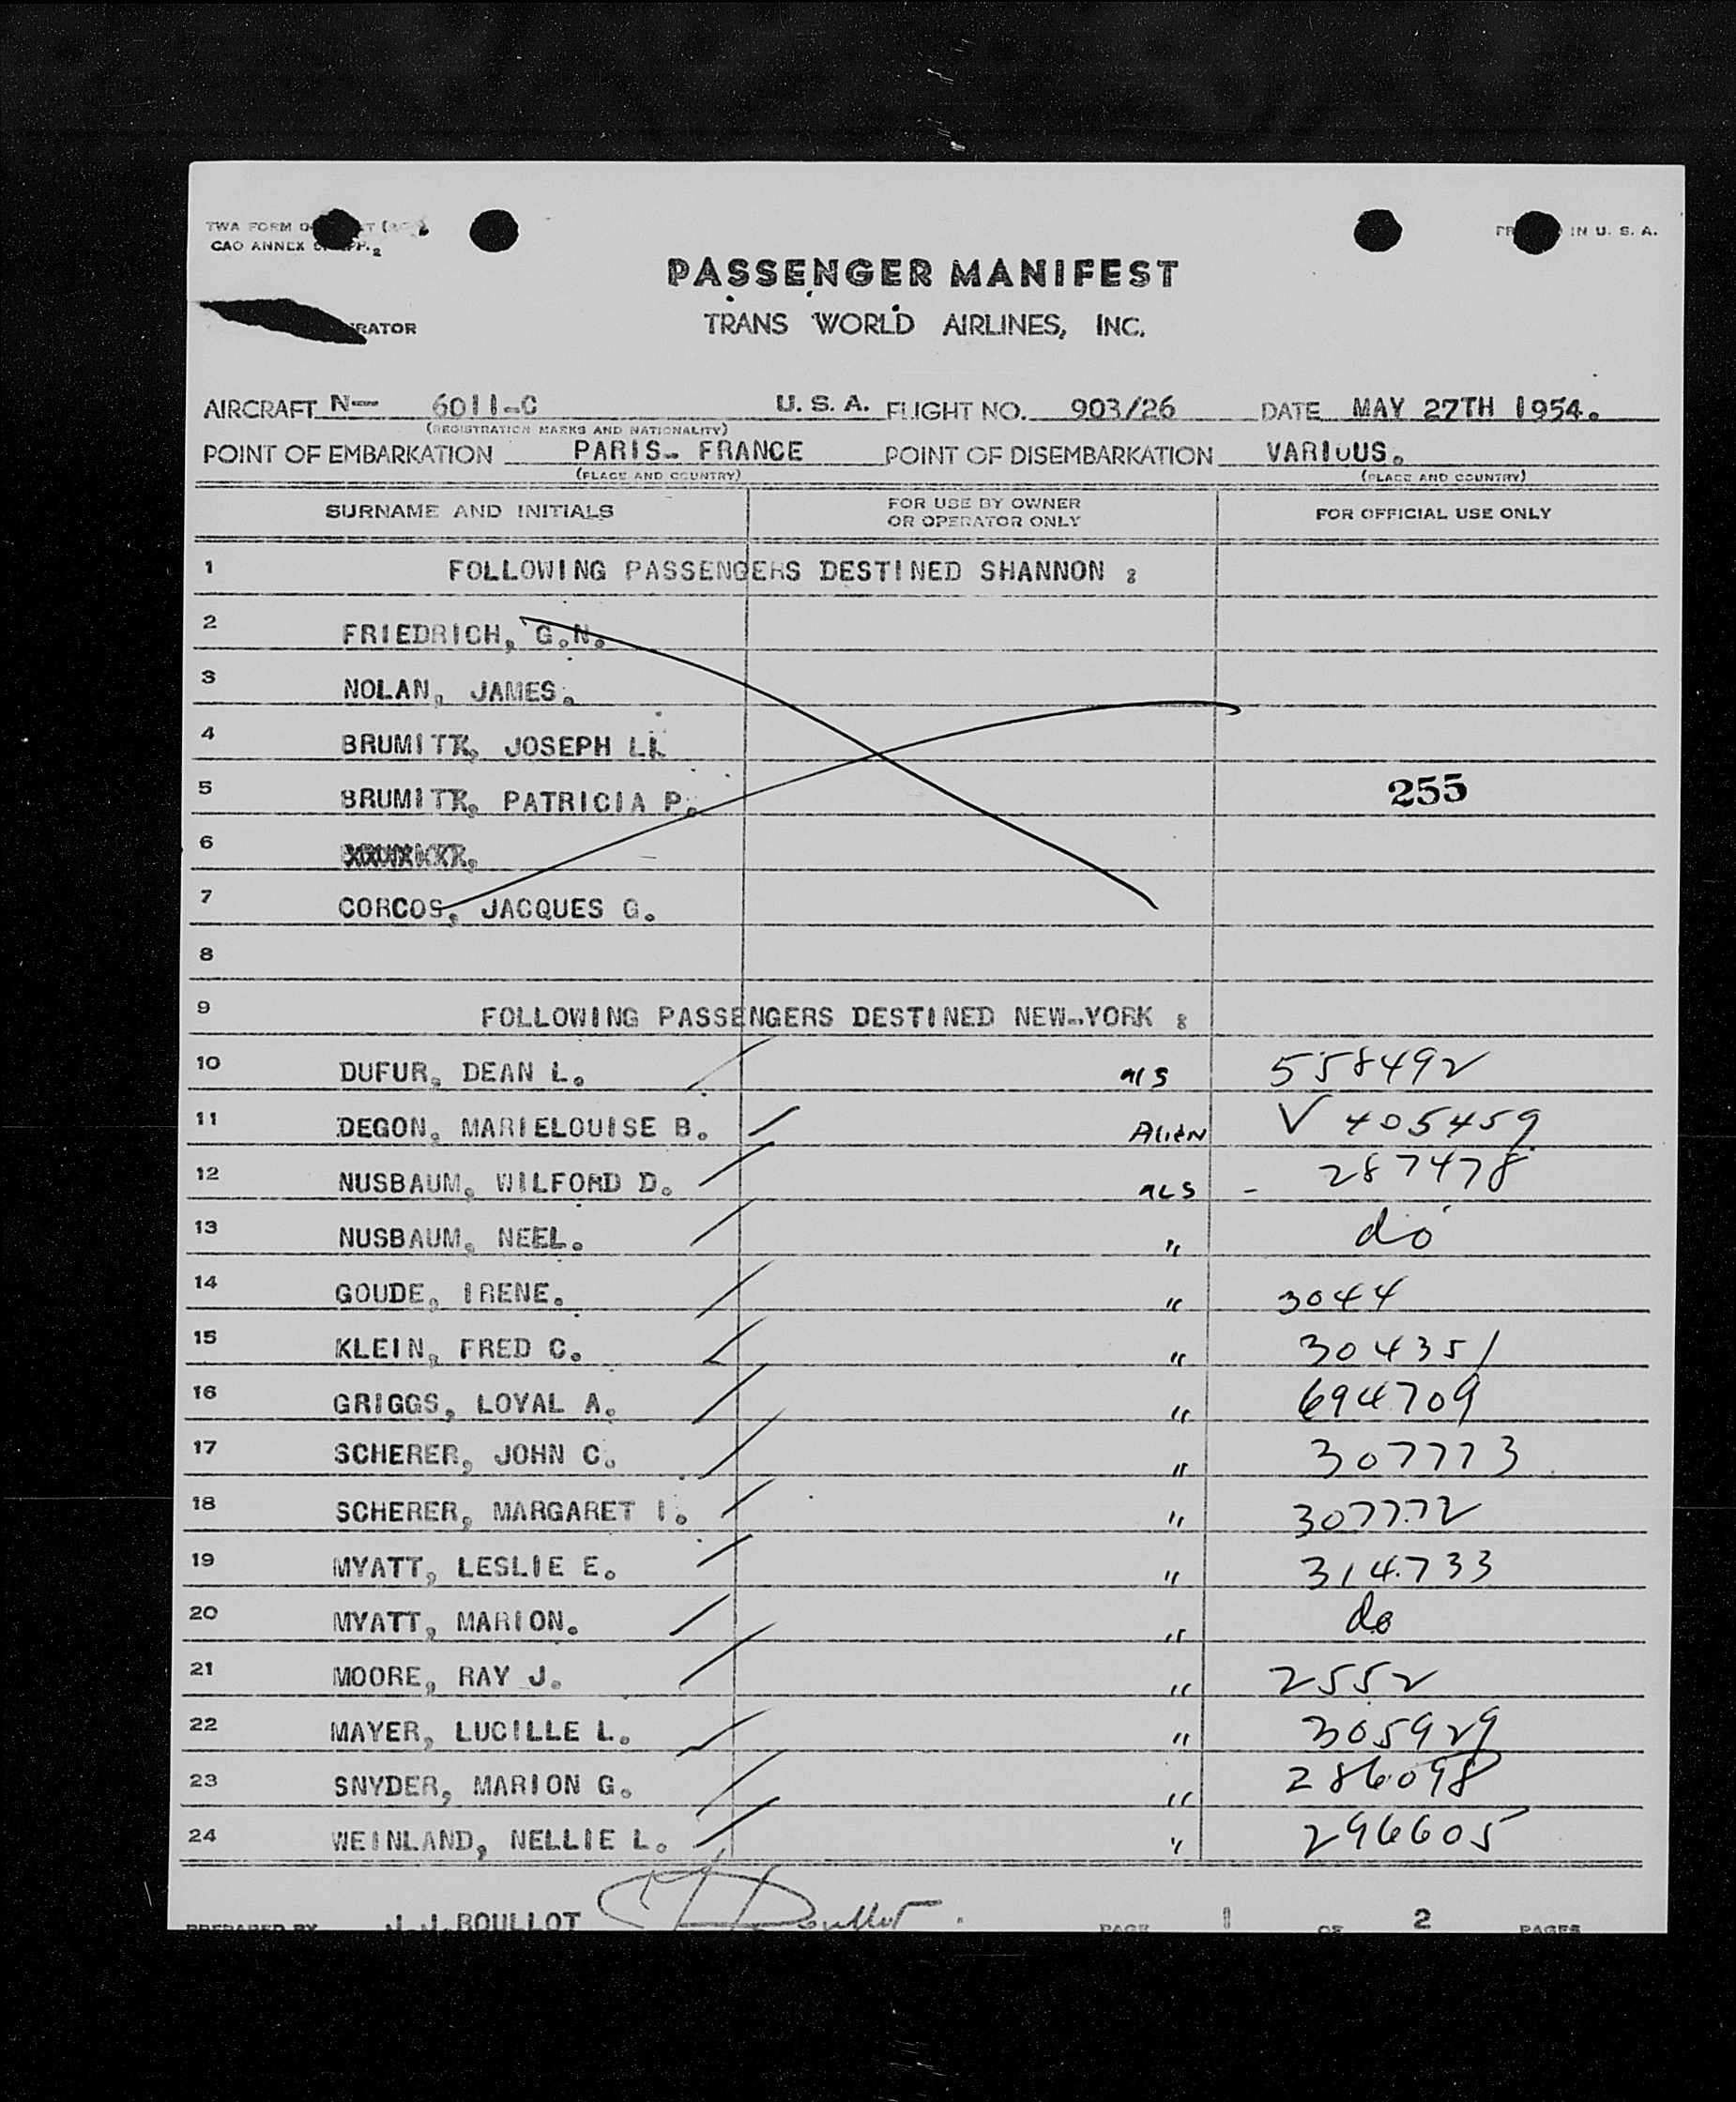 TWA FORM
CAO ANNEX
IN U. S. A.
PASSENGER MANIFEST
TRANS WORLD AIRLINES, INC.
AIRCRAFT N- 6011-C U. S. A. FLIGHT NO. 903/26 DATE MAY 27TH 1954.
(REGISTRATION MARKS AND NATIONALITY)
POINT OF EMBARKATION PARIS- FRANCE POINT OF DISEMBARKATION VARIOUS.
(PLACE AND COUNTRY) (PLACE AND COUNTRY)
SURNAME AND INITIALS FOR USE BY OWNER OR OPERATOR ONLY FOR OFFICIAL USE ONLY
1 FOLLOWING PASSENGERS DESTINED SHANNON :
2 FRIEDRICH, G.N.
3 NOLAN, JAMES.
4 JOSEPH
5 PATRICIA P. 255
6
7 CORCOS, JACQUES G.
8
9 FOLLOWING PASSENGERS DESTINED NEW-YORK :
10 DUFUR, DEAN L. 558492
11 DEGON, MARIELOUISE B. Alien V 405459
12 NUSBAUM, WILFORD D. - 287478
13 NUSBAUM, NEEL. " do
14 GOUDE, IRENE. " 3044
15 KLEIN, FRED C. " 304351
16 GRIGGS, LOYAL A. " 694709
17 SCHERER, JOHN C. " 307773
18 SCHERER, MARGARET I. " 307772
19 MYATT, LESLIE E. " 314733
20 MYATT, MARION. " do
21 MOORE, RAY J. " 2552
22 MAYER, LUCILLE L. " 305929
23 SNYDER, MARION G. " 286098
24 WEINLAND, NELLIE L. " 296605
PREPARED BY J.J.ROULLOT PAGE 1 OF 2 PAGES